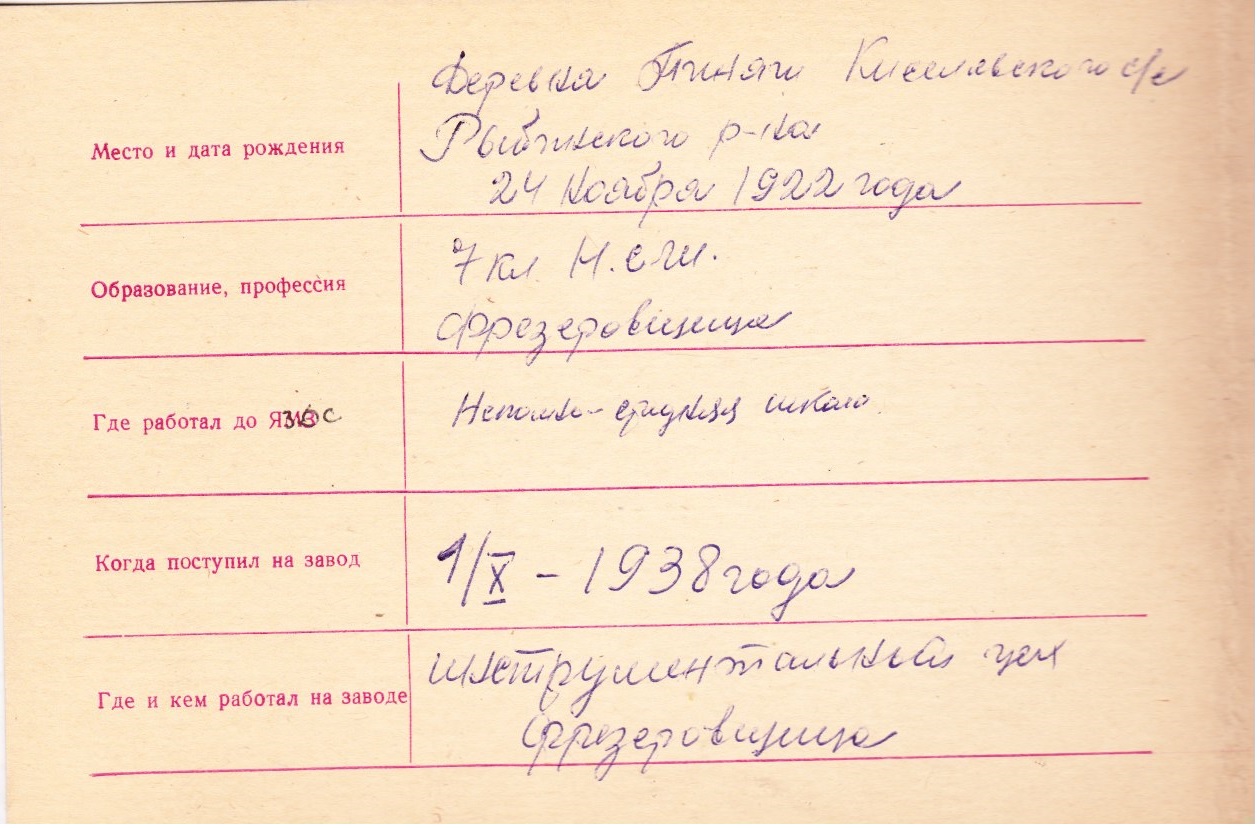 Деревня Пиняги Киселевского с/с
Место и дата рождения
Рыбинского р-на
24 Ноября 1922 года
7 кл. Н.С.Ш.
Образование, профессия
фрезеровщица
Где работал до ЯЗОС
Неполно-средняя школа
Когда поступил на завод
1/X - 1938 года
инструментальный цех
Где и кем работал на заводе
фрезеровщица